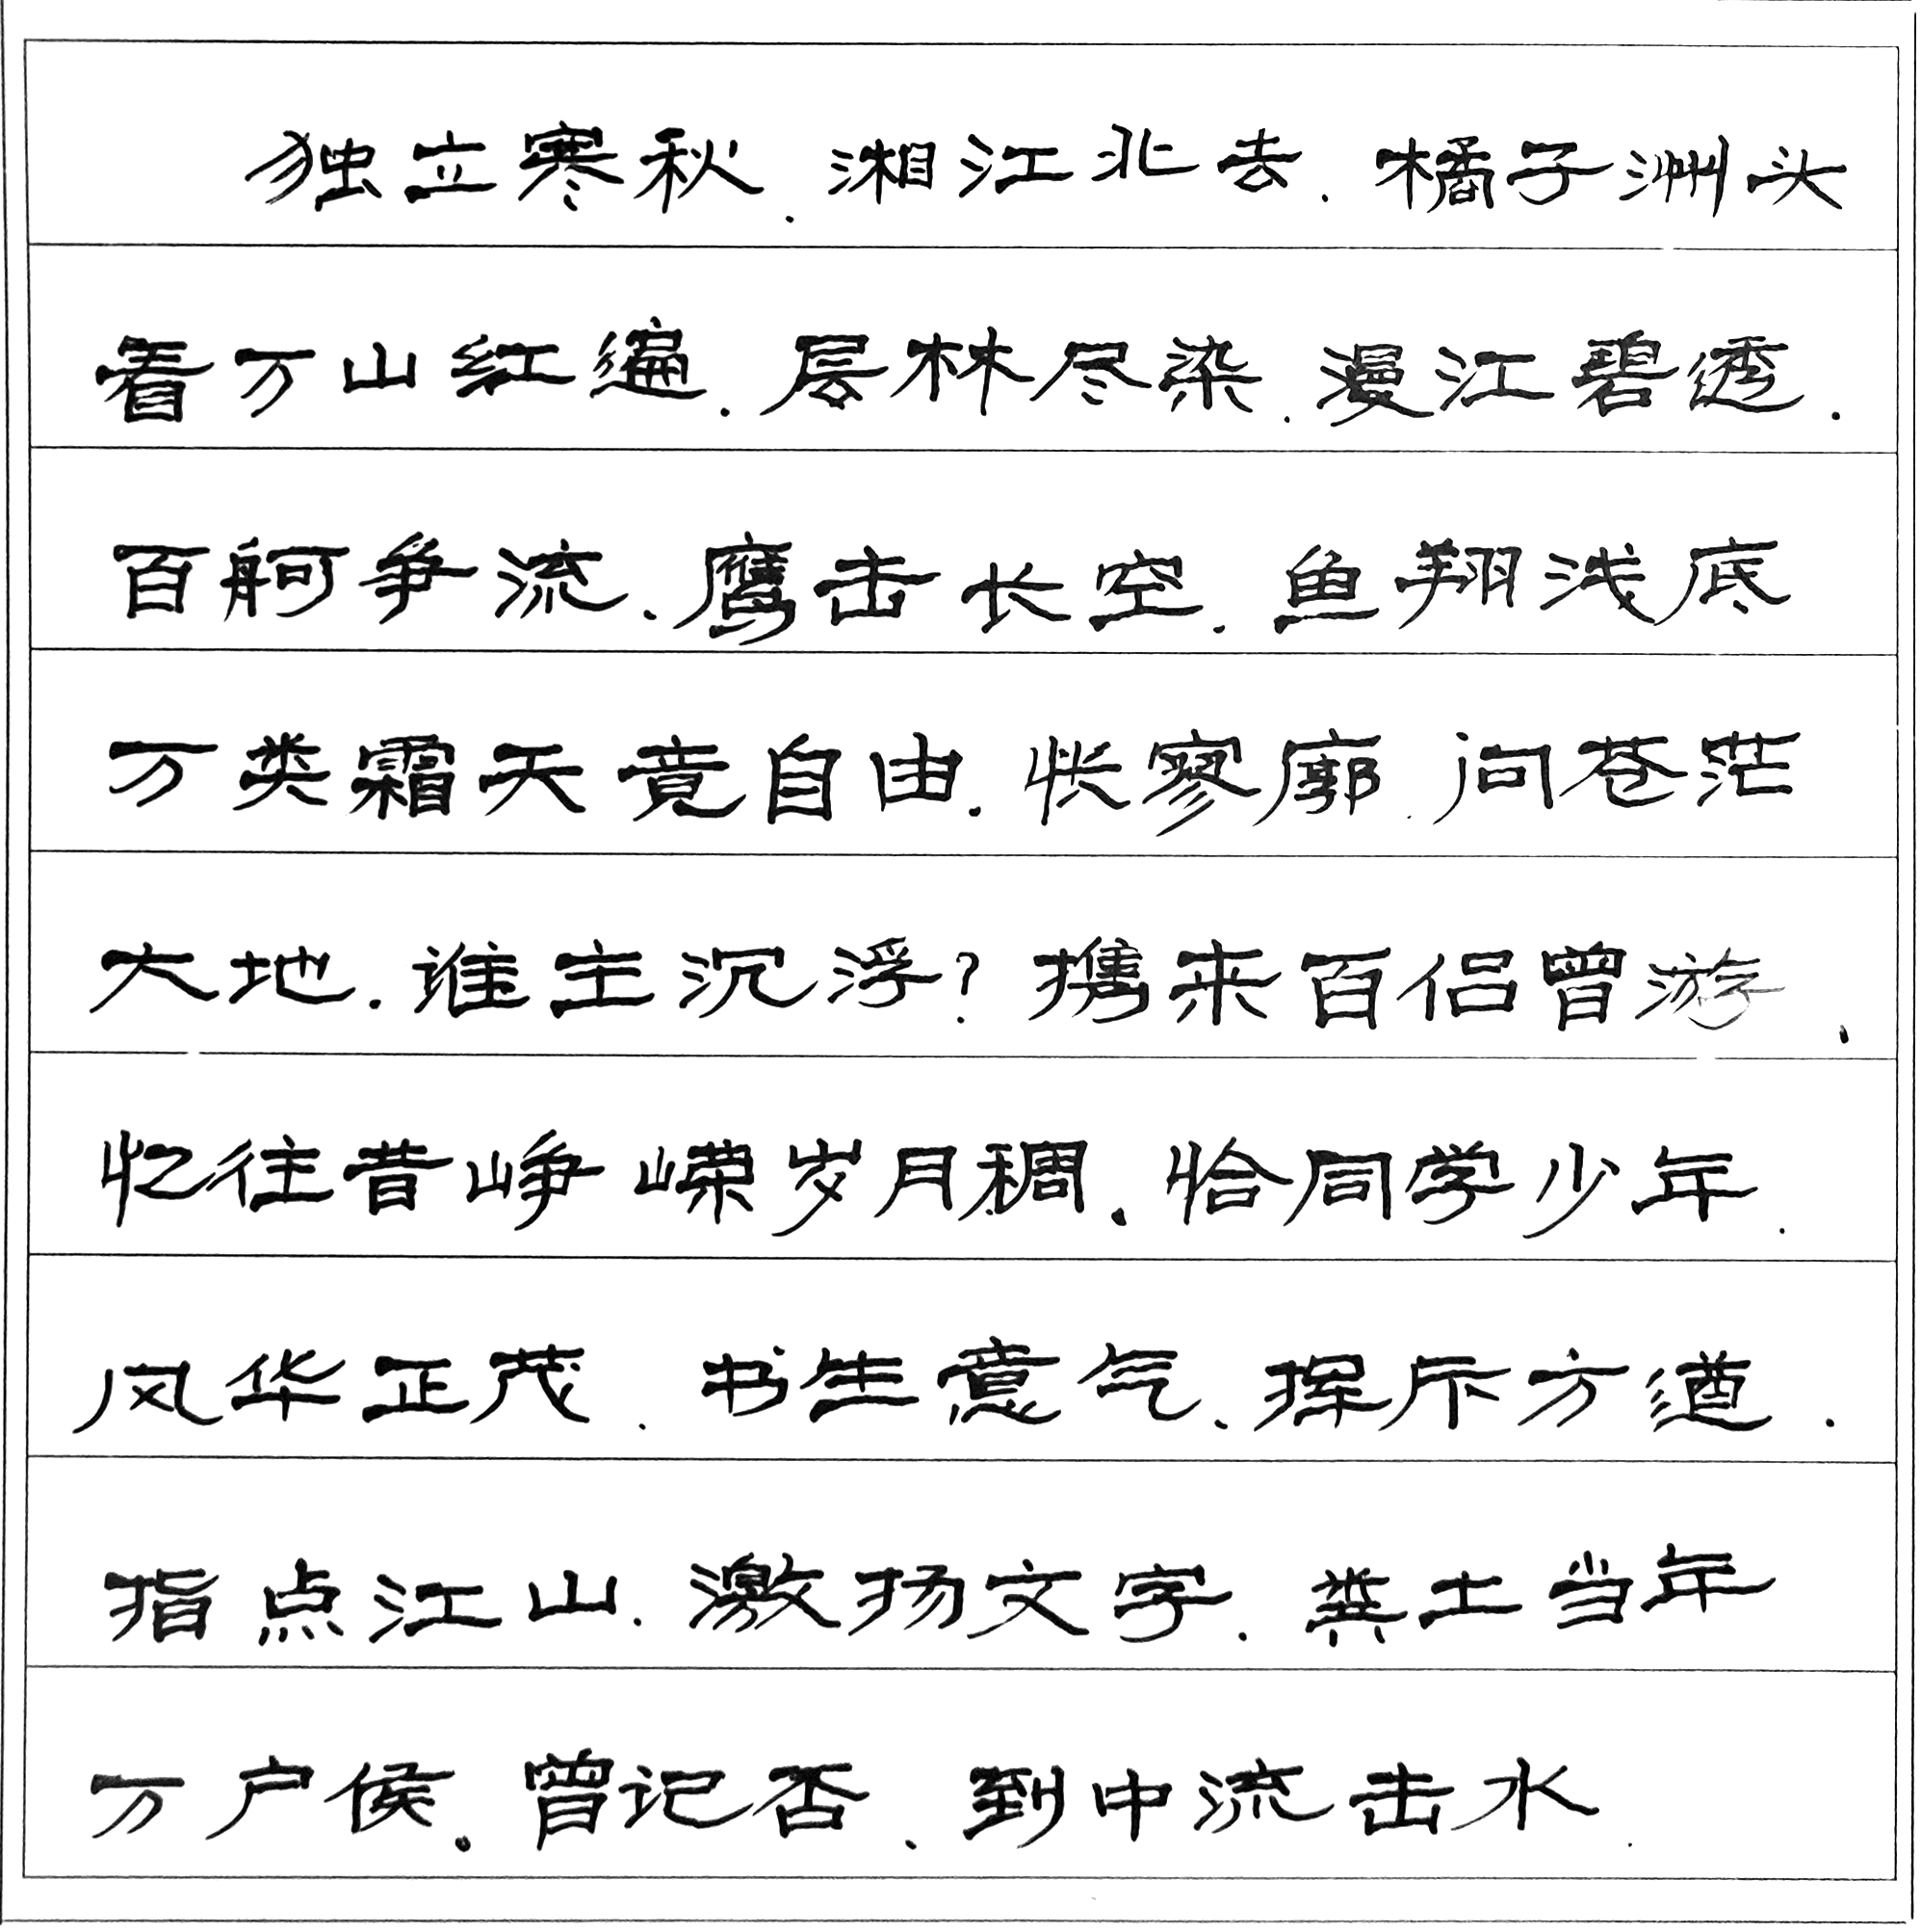 独立寒秋.湘江北去.橘子洲头
看万山红遍.层林尽染.漫江碧透.
百舸争流.鹰击长空.鱼翔浅底
万类霜天竞自由.怅寥廓.问苍茫
大地.谁主沉浮?携来百侣曾游、
忆往昔峥嵘岁月稠.恰同学少年.
风华正茂.书生意气、挥斥方遒.
指点江山.激扬文字.粪土当年
万户侯.曾记否、到中流击水.